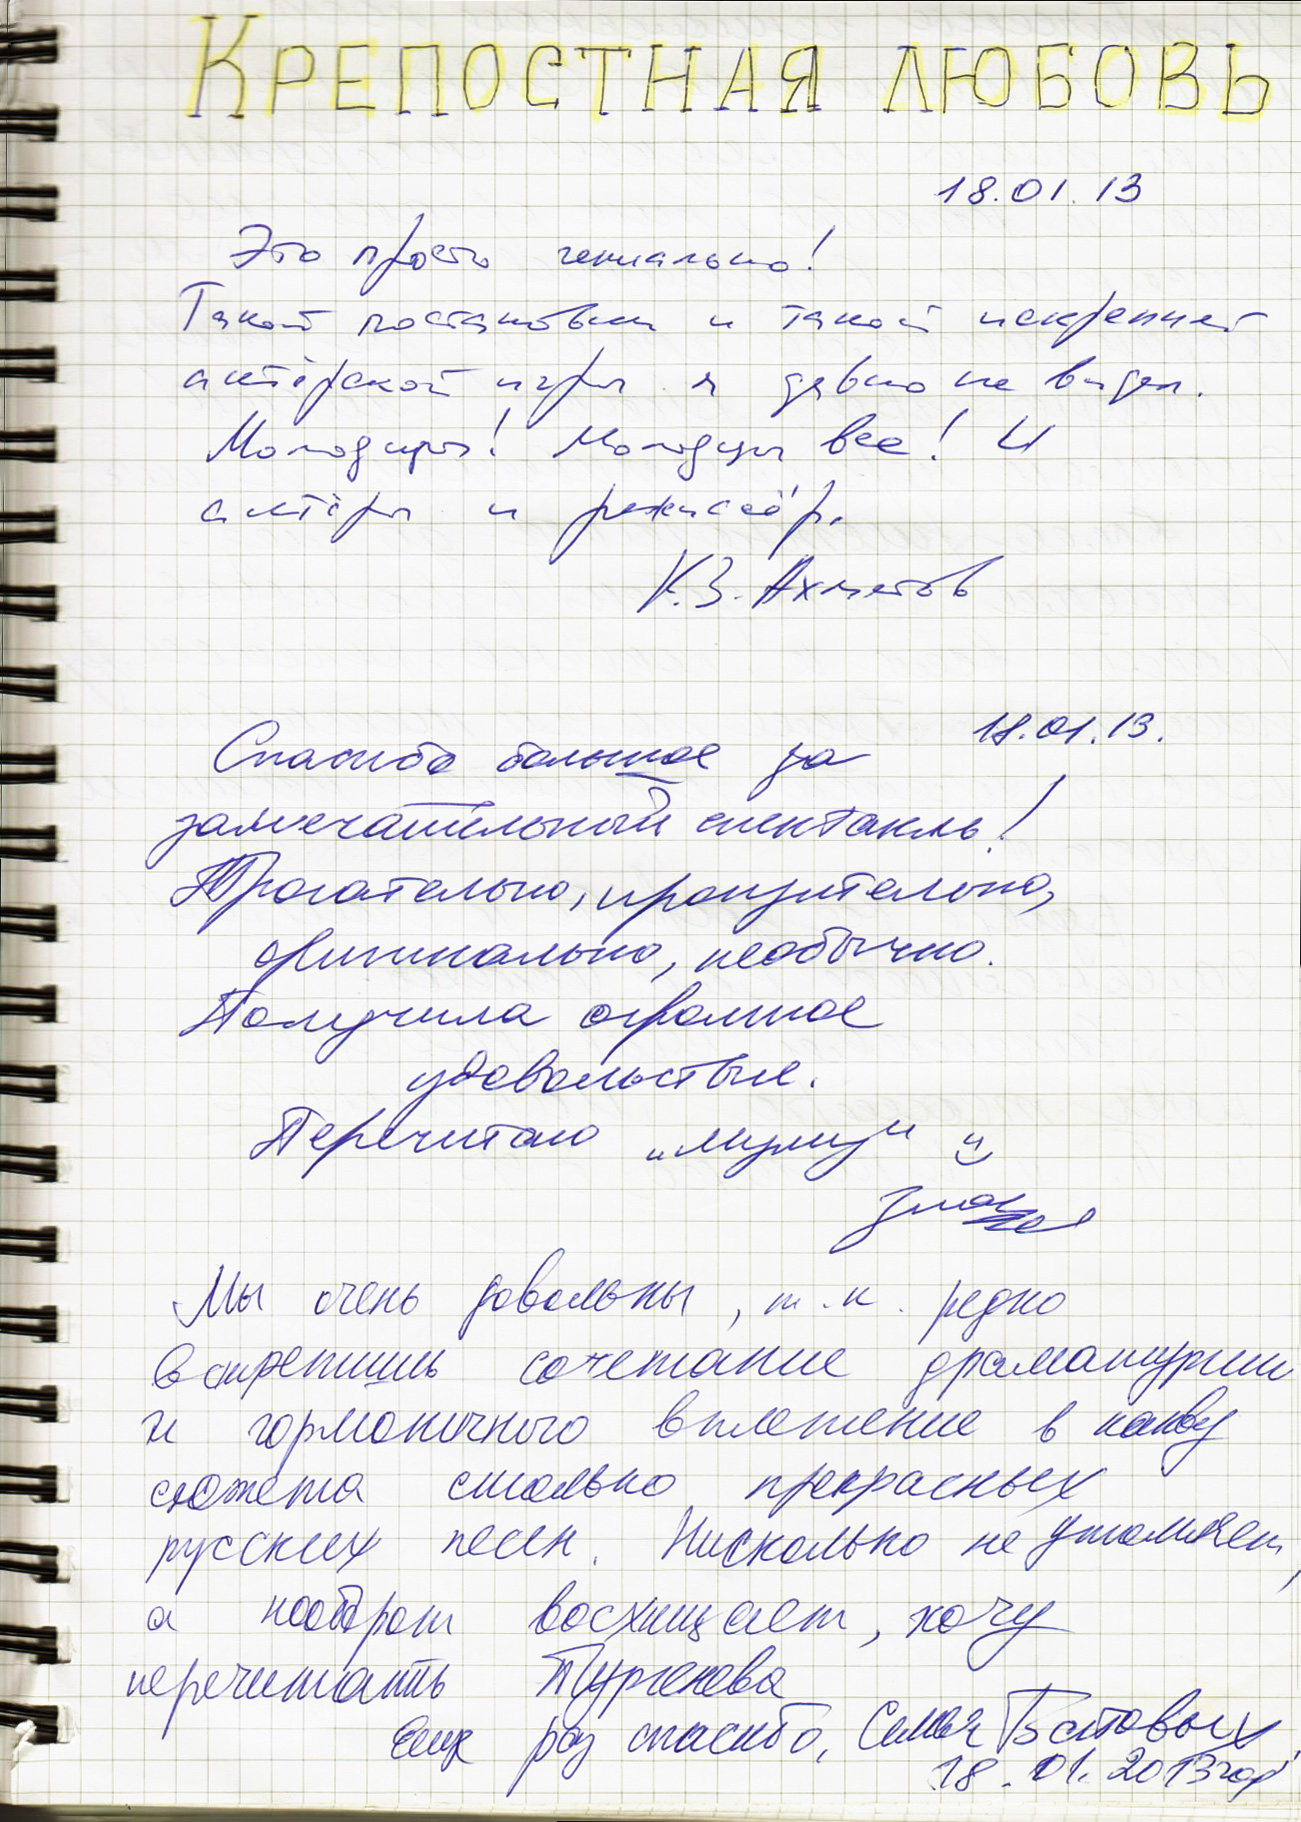 КРЕПОСТНАЯ ЛЮБОВЬ
18.01.13
Это просто гениально!
Такой постановки и такой искренней
актёрской игры я давно не видел.
Молодцы! Молодцы все! И
актёры и режиссёр.
К.З. Ахметов
18.01.13.
Спасибо большое за
замечательный спектакль!
Трогательно, пронзительно,
оригинально, необычно.
Получила огромное
удовольствие.
Перечитаю „Муму"
Мы очень довольны, т.к. редко
встретишь сочетание драматургии
и гармоничного вплетение в канву
сюжета столько прекрасных
русских песен. Нисколько не утомляет,
а наоборот восхищает, хочу
перечитать Тургенева
Еще раз спасибо, Семья
18.01.2013год